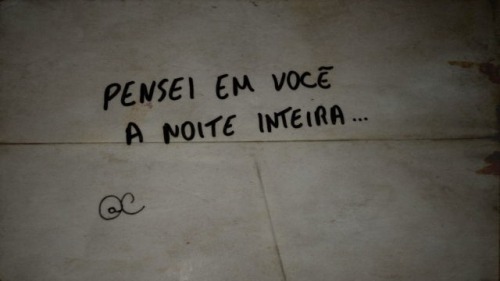 PENSEI EM VOCÊ
A NOITE INTEIRA...
@C